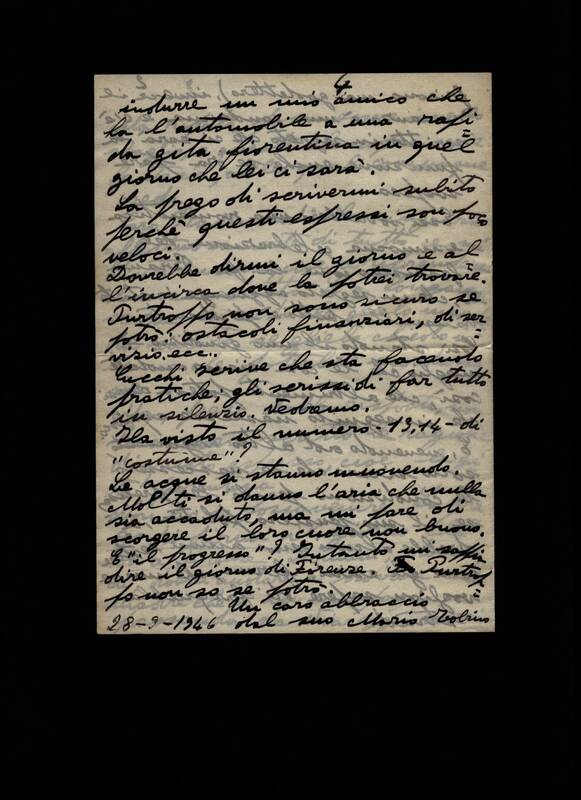 indurre un mio amico che
ha l'automobile a una rapi=
da gita fiorentina in quel
giorno che lei ci sarà.
La prego di scrivermi subito
perchè questi espressi son poco
veloci.
Dovrebbe dirmi il giorno e al
l'incirca dove la potrei trovare.
Purtroppo non sono sicuro se
potrò: ostacoli finanziari, di ser=
vizio, ecc..
Lucchi scrive che sta facendo
pratiche; gli scrissi di far tutto
in silenzio. Vedremo.
Ha visto il numero 13,14 - di
"costume"?
Le acque si stanno muovendo.
Molti si danno l'aria che nulla
sia accaduto, ma mi pare di
scorgere il loro cuore non buono.
E "il progresso"? Intanto mi sappia
dire il giorno di Firenze. Purtrop=
po non so se potrò.
Un caro abbraccio
28-9-1946 dal suo Mario Tobino